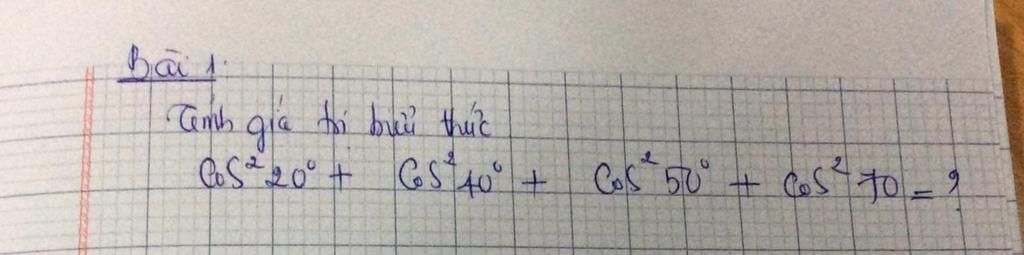 Bài 1.
Tính giá trị biểu thức
Cos²20° + Cos²40° + Cos²50° + Cos²70 = ?